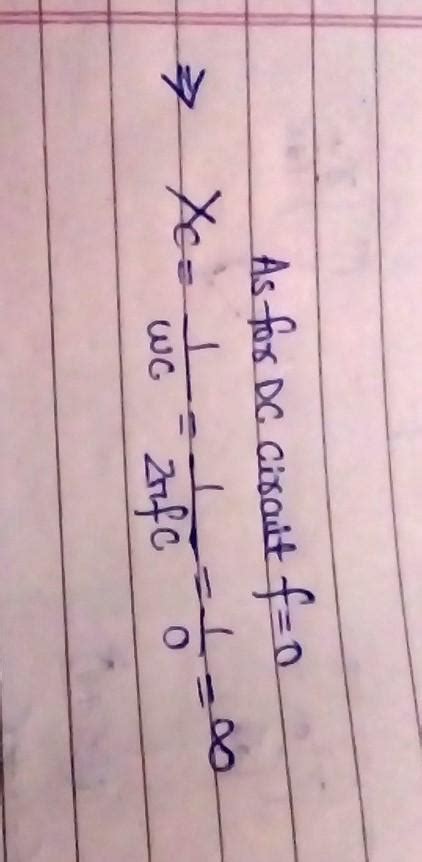 As for DC circuit f=0
⇒ Xc = 1/ωC = 1/2πfC = 1/0 = ∞